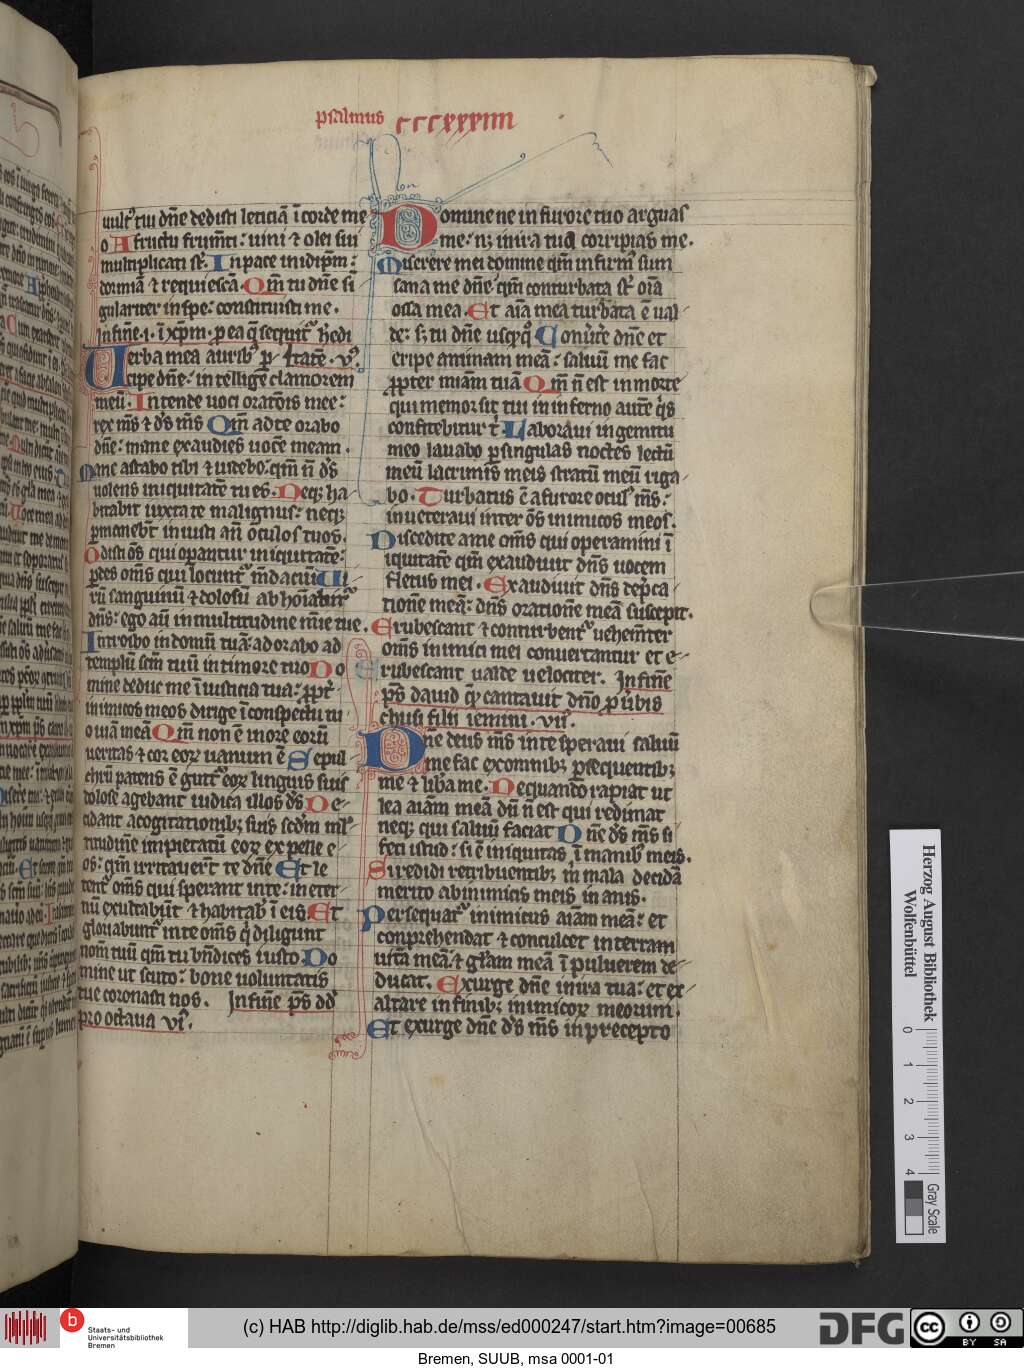 psalmus ccccxxxiiii
uult᷒ tui dn̄e dedisti leticiā ī corde me
o A fructu frum̄ti: uini ⁊ olei sui
multiplicati st̄. In pace in idip̄m:
dormiā ⁊ requiescā. Qm̄ tu dn̄e si
gulariter in spe: constituisti me.
In fine .i. ī xp̄m. p ea q̄ sequit᷒ h̄edi
Uerba mea aurib᷒ p̄ / tate. v᷒.
cipe dn̄e: intellige clamorem
meū. Intende uoci orat̄ois mee:
rex m̄s ⁊ d̄s m̄s Qm̄ ad te orabo
dn̄e: mane exaudies uoce meam.
Mane astabo tibi ⁊ uidebo: qm̄ n̄ d̄s
uolens iniquitatē tu es. Neq; ha
bitabit iuxta te malignus: neq;
pmanebt̄ iniusti an̄ oculos tuos.
Odisti ōs qui opantur iniquitatē:
pdes om̄s qui locunt᷒ m̄daciū Ui
rū sanguinū ⁊ dolosū abhoīabit᷒
dn̄s: ego aū in multitudine m̄ie tue.
Introibo in domū tuā: adorabo ad
templū sc̄m tuū in timore tuo Do
mine deduc me ī iusticia tua: ppt̄
inimicos meos dirige ī conspectu tu
o uiā meā Qm̄ non ē in ore eorū
ueritas ⁊ cor eoꝝ uanum ē Sepul
chrū patens ē gutt᷒ eoꝝ linguis suis
dolose agebant iudica illos d̄s De
cidant a cogitationib; suis sc̄dm ml᷒
titudinē impietatū eoꝝ expelle e
os: qm̄ irritauert̄ te dn̄e Et le
tent᷒ om̄s qui sperant in te: in eter
nū exultabūt ⁊ habitab᷒ ī eis. Et
gloriabunt᷒ in te om̄s q̄ diligunt
nom̄ tuū qm̄ tu bn̄dices iusto Do
mine ut scuto: bone uoluntatis
tue coronasti nos. In fine p̄s dd̄
pro octaua vi᷒.
Domine ne in furore tuo arguas
me: n; in ira tua corripias me.
Miserere mei domine qm̄ infirm᷒ sum
sana me dn̄e qm̄ conturbata st̄ oīa
ossa mea. Et aīa mea turbata ē ual
de: s; tu dn̄e usq;q᷒ Conūtē dn̄e et
eripe aminam meā: saluū me fac
ppter miām tuā Qm̄ n̄ est in morte
qui memor sit tui in inferno autē q̄s
confitebitur t᷒. Laboraui in gemitu
meo lauabo p singulas noctes lectū
meū lacrimis meis stratū meū riga
bo. Turbatus ē a furore ocul᷒ m̄s:
inueteraui inter ōs inimicos meos.
Discedite a me om̄s qui operamini ī
iquitatē qm̄ exaudiuit dn̄s uocem
fletus mei. Exaudiuit dn̄s dep̄ca
tionē meā: dn̄s orationē meā suscepit.
Erubescant ⁊ conturbent᷒ uehem̄ter
om̄s inimici mei conuertantur et e
rubescant ualde uelociter. In fine
p̄s dauid q̄ cantauit dn̄o p ūbis
chusi filii iemini. vii᷒.
Dn̄e deus m̄s in te speraui saluū
me fac ex omnib; psequentib;
me ⁊ libā me. Nequando rapiat ut
lea aīam meā dū n̄ est qui redimat
neq; qui saluū faciat Dn̄e d̄s m̄s si
feci istud: si ē iniquitas ī manib᷒ meis.
Si reddidi retribuentib; m̄ mala decidā
merito ab inimicis meis inanis.
Persequat᷒ inimicus aīam meā: et
conprehendat ⁊ conculcet in terram
uitā meā ⁊ gl̄am meā ī puluerem de
ducat. Exurge dn̄e in ira tua: et ex
altare in finib; inimicoꝝ meorum.
Et exurge dn̄e d̄s m̄s in precepto
Herzog August Bibliothek
Wolfenbüttel
0
1
2
3
4
Gray Scale
b Staats- und
Universitätsbibliothek
Bremen
(c) HAB http://diglib.hab.de/mss/ed000247/start.htm?image=00685
DFG
cc
BY SA
Bremen, SUUB, msa 0001-01